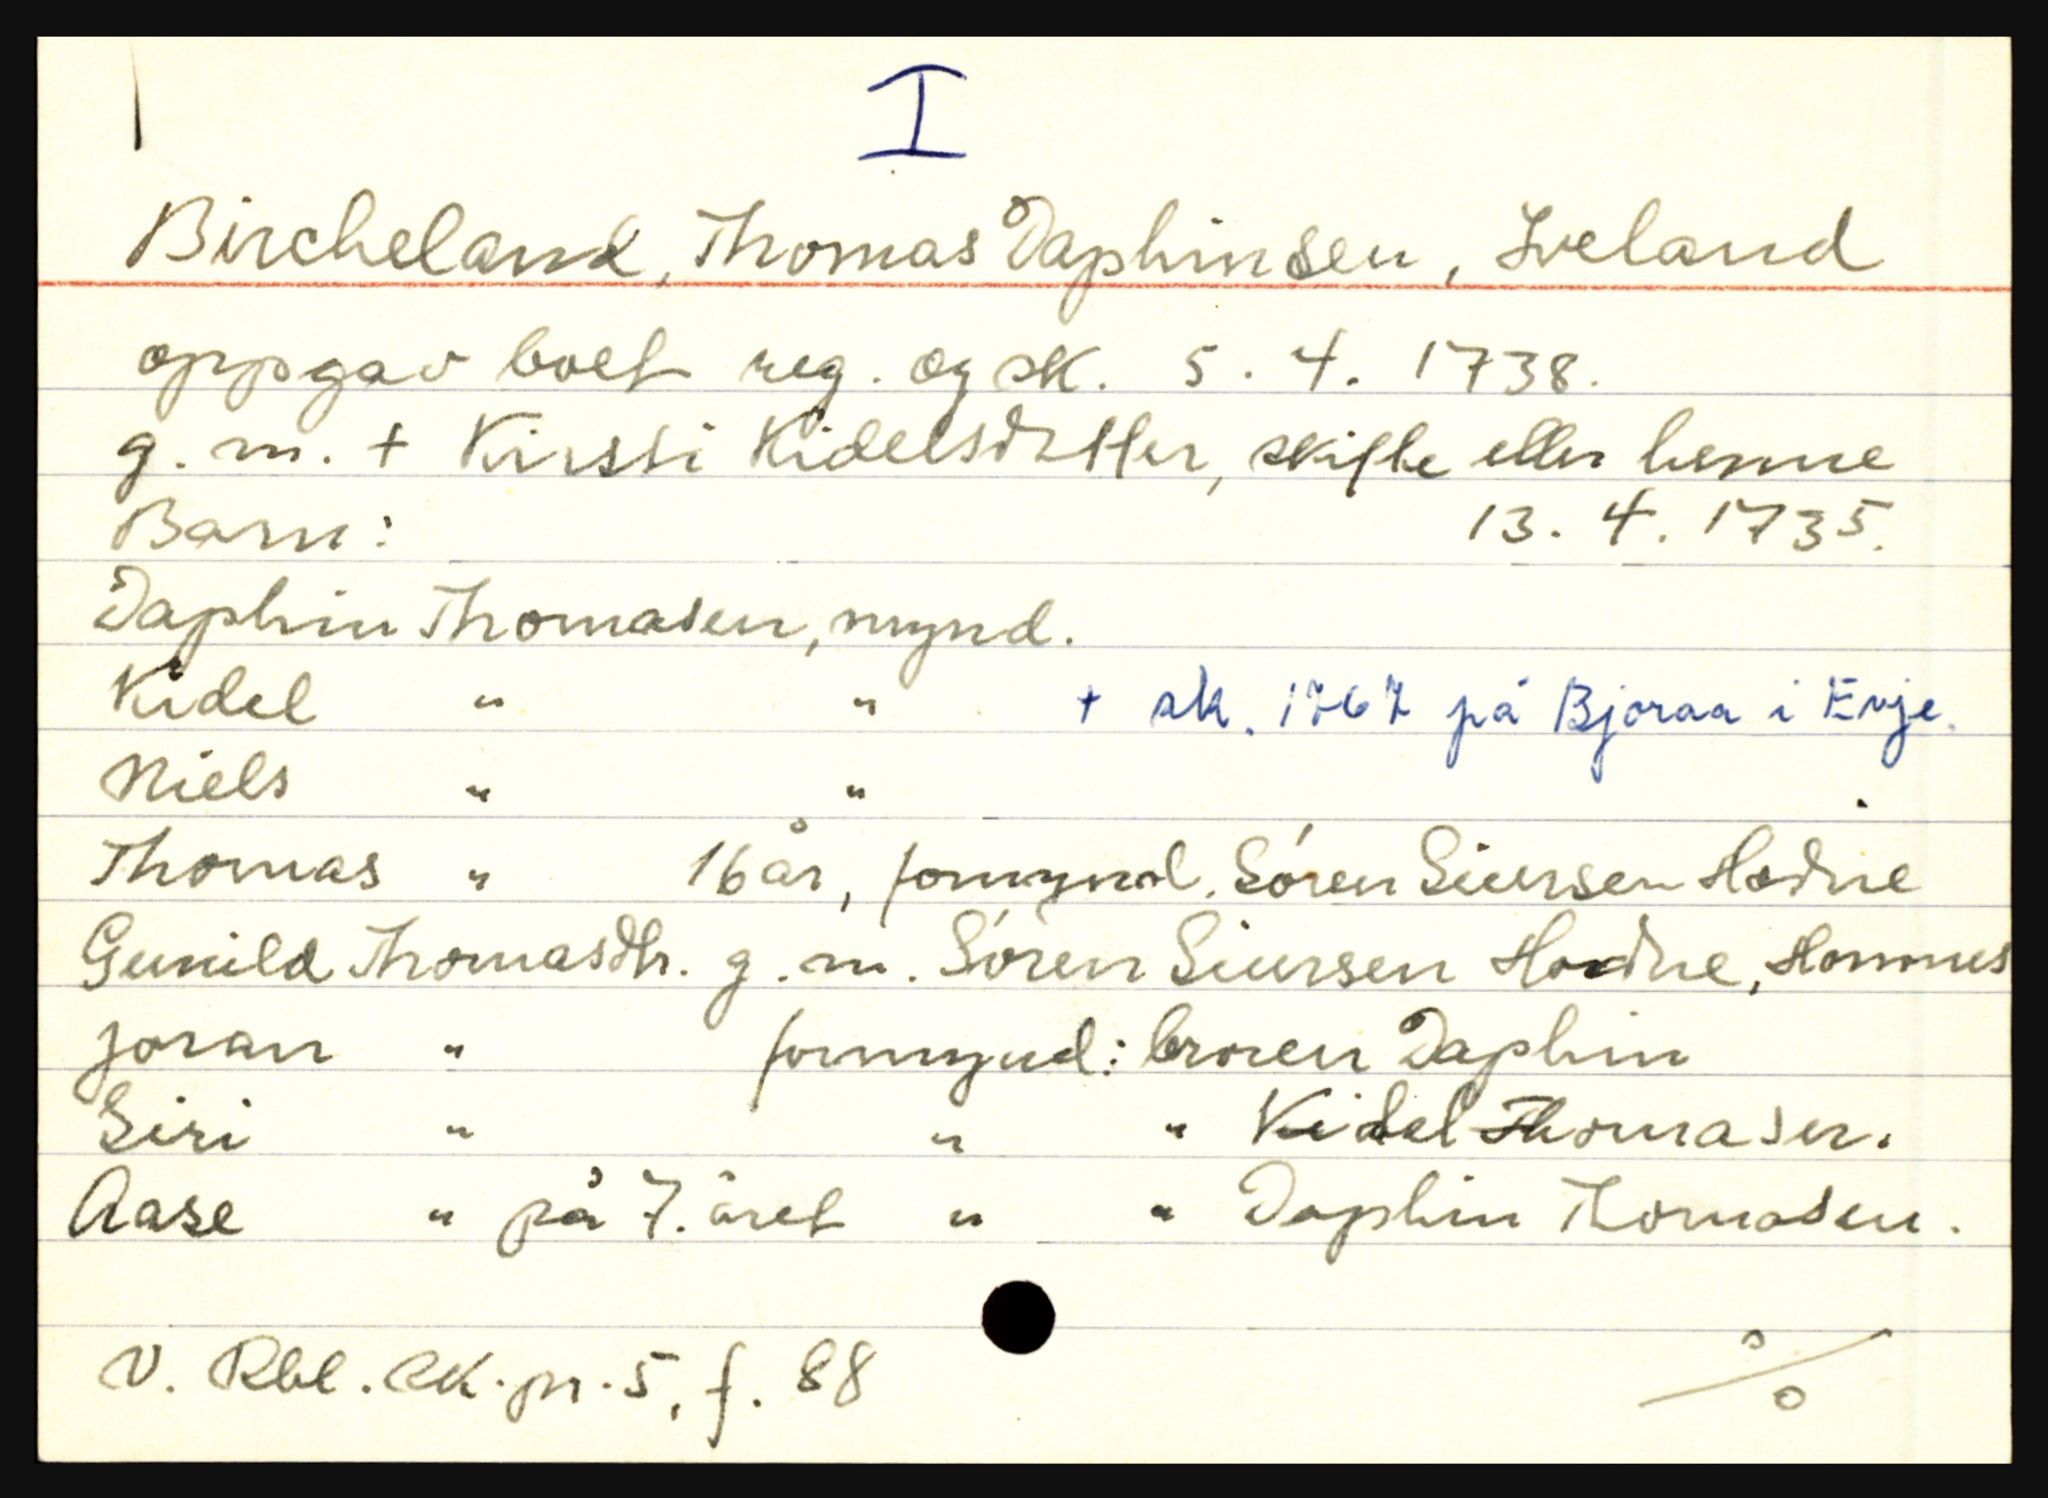 I
Bircheland, Thomas Daphinsen, Iveland
oppgav boet reg. og sk. 5. 4. 1738.
g. m. + Kirsti Kidelsdatter, skifte etter henne
Barn: 13. 4. 1735.
Daphin Thomasen, mynd.
Kidel " " + sk. 1767 på Bjoraa i Evje.
Niels " "
Thomas " 16 år, formynd. Sören Siursen Hodne
Gunild Thomasdtr. g. m. Sören Siursen Hodne, Homnes
Joran " formynd: broren Daphin
Siri " " " Kidel Thomasen.
Aase " på 7. året " " Daphin Thomasen.
V. Rbl. sk. pr. 5, f. 88